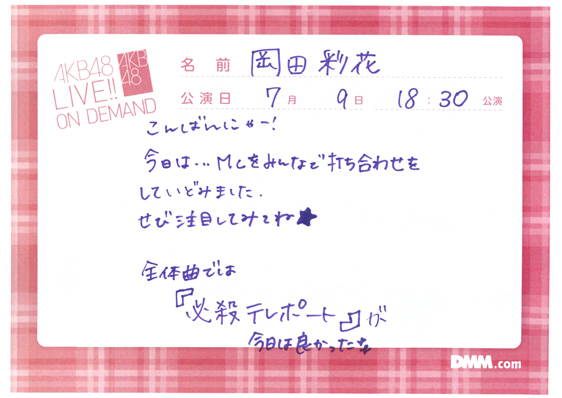 AKB48
LIVE!!
ON DEMAND
AKB
48
名前 岡田彩花
公演日 7月 9日 18:30 公演
こんばんにゃー!
今日は…MCをみんなで打ち合わせを
していどみました.
ぜひ注目してみてね★
全体曲では
『必殺テレポート』が
今日は良かったな
DMM.com